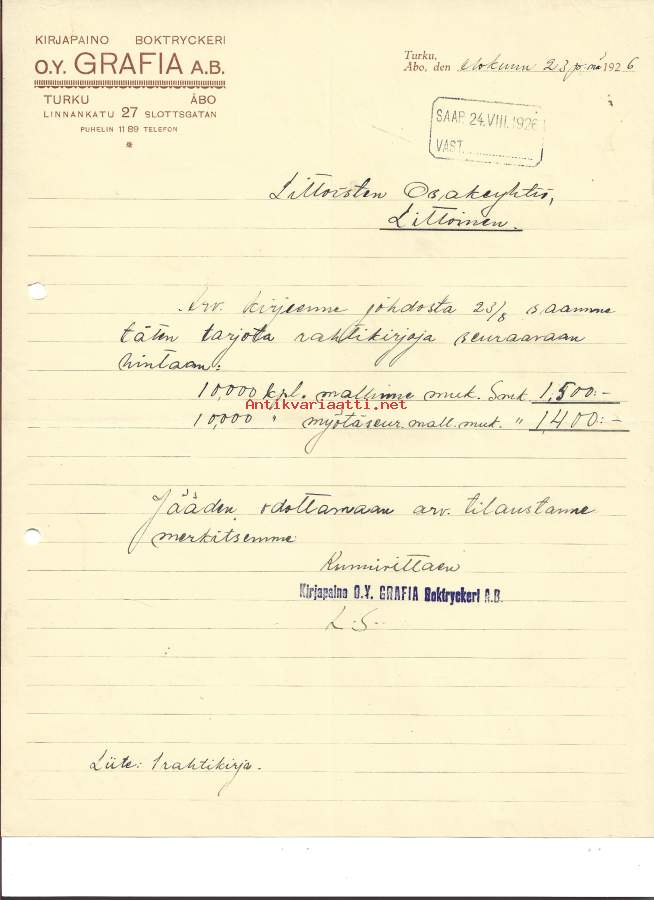 KIRJAPAINO BOKTRYCKERI
O.Y. GRAFIA A.B.
TURKU ÅBO
LINNANKATU 27 SLOTTSGATAN
PUHELIN 11 89 TELEFON
Turku,
Åbo, den elokuun 23 p:nä 1926
SAAP. 24.VIII.1926
VAST.
Littoisten Osakeyhtiö,
Littoinen.
Arv. kirjeenne johdosta 23/8 saamme
täten tarjota rahtikirjoja seuraavaan
hintaan:
10,000 kpl. mallinne muk. Smk 1,500:-
Antikvariaatti.net
10,000 " myötäseur. mall. muk. " 1,400:-
Jääden odottamaan arv. tilaustanne
merkitsemme
Kunnioittaen
Kirjapaino O.Y. GRAFIA Boktryckeri A.B.
L.S.
Liite: 1 rahtikirja.